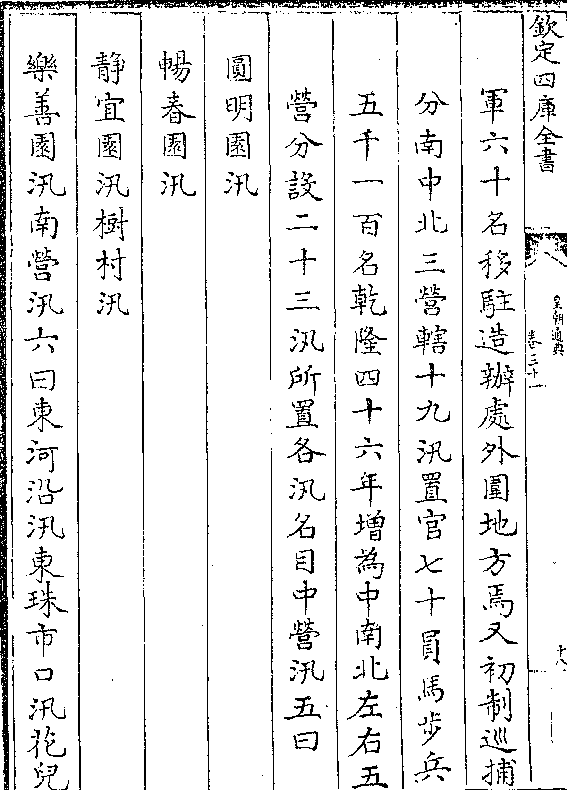 欽定四庫全書
皇朝通典
卷三十一
十八
軍六十名移駐造辦處外圍地方焉又初制巡捕
分南中北三營轄十九汛置官七十員馬步兵
五千一百名乾隆四十六年增為中南北左右五
營分設二十三汛所置各汛名目中營汛五曰
圓明園汛
暢春園汛
靜宜園汛樹村汛
樂善園汛南營汛六曰東河沿汛東珠市口汛花兒